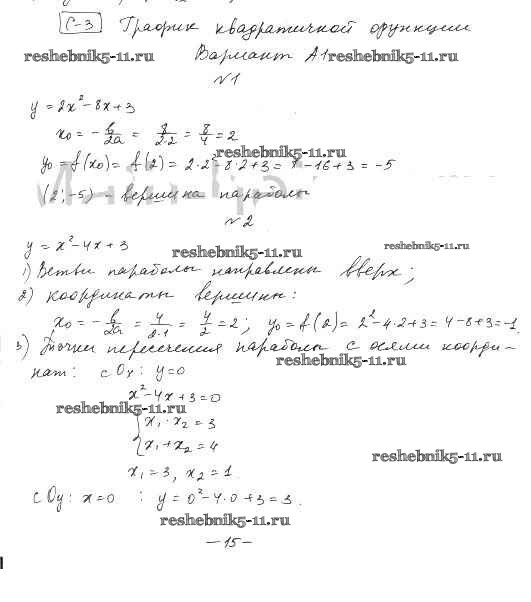 С-3 График квадратичной функции
reshebnik5-11.ru Вариант А1 reshebnik5-11.ru
№1
y = 2x² - 8x + 3
x₀ = -b/2a = 8/2·2 = 8/4 = 2
reshebnik5-11.ru
y₀ = f(x₀) = f(2) = 2·2² - 8·2 + 3 = 8 - 16 + 3 = -5
(2; -5) - вершина параболы
№2
y = x² - 4x + 3 reshebnik5-11.ru reshebnik5-11.ru
1) Ветви параболы направлены вверх;
2) координаты вершины:
x₀ = -b/2a = 4/2·1 = 4/2 = 2; y₀ = f(2) = 2² - 4·2 + 3 = 4 - 8 + 3 = -1
3) Точки пересечения параболы с осями коорди-
reshebnik5-11.ru
нат: с Ox: y = 0
x² - 4x + 3 = 0
reshebnik5-11.ru
{ x₁ · x₂ = 3
x₁ + x₂ = 4
reshebnik5-11.ru
x₁ = 3, x₂ = 1.
с Oy: x = 0 : y = 0² - 4·0 + 3 = 3.
reshebnik5-11.ru
- 15 -